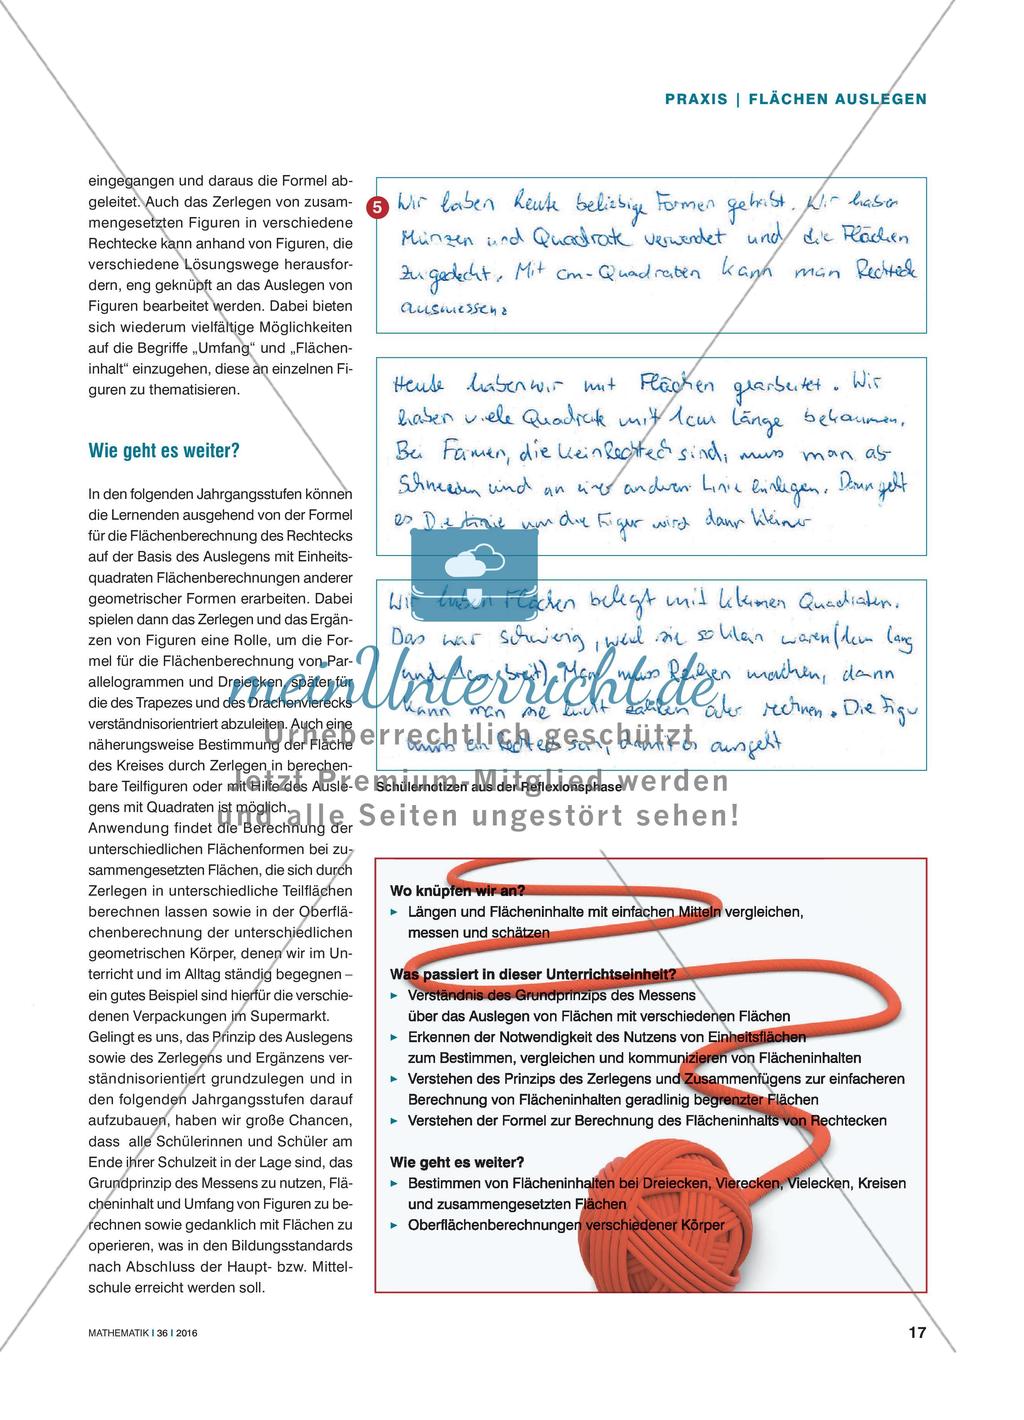 PRAXIS | FLÄCHEN AUSLEGEN
eingegangen und daraus die Formel ab-
geleitet. Auch das Zerlegen von zusam-
mengesetzten Figuren in verschiedene
Rechtecke kann anhand von Figuren, die
verschiedene Lösungswege herausfor-
dern, eng geknüpft an das Auslegen von
Figuren bearbeitet werden. Dabei bieten
sich wiederum vielfältige Möglichkeiten
auf die Begriffe „Umfang“ und „Flächen-
inhalt“ einzugehen, diese an einzelnen Fi-
guren zu thematisieren.
Wie geht es weiter?
In den folgenden Jahrgangsstufen können
die Lernenden ausgehend von der Formel
für die Flächenberechnung des Rechtecks
auf der Basis des Auslegens mit Einheits-
quadraten Flächenberechnungen anderer
geometrischer Formen erarbeiten. Dabei
spielen dann das Zerlegen und das Ergän-
zen von Figuren eine Rolle, um die For-
mel für die Flächenberechnung von Par-
allelogrammen und Dreiecken, später für
die des Trapezes und des Drachenvierecks
verständnisorientiert abzuleiten. Auch eine
näherungsweise Bestimmung der Fläche
des Kreises durch Zerlegen in berechen-
bare Teilfiguren oder mit Hilfe des Ausle-
gens mit Quadraten ist möglich.
Anwendung findet die Berechnung der
unterschiedlichen Flächenformen bei zu-
sammengesetzten Flächen, die sich durch
Zerlegen in unterschiedliche Teilflächen
berechnen lassen sowie in der Oberflä-
chenberechnung der unterschiedlichen
geometrischen Körper, denen wir im Un-
terricht und im Alltag ständig begegnen –
ein gutes Beispiel sind hierfür die verschie-
denen Verpackungen im Supermarkt.
Gelingt es uns, das Prinzip des Auslegens
sowie des Zerlegens und Ergänzens ver-
ständnisorientiert grundzulegen und in
den folgenden Jahrgangsstufen darauf
aufzubauen, haben wir große Chancen,
dass alle Schülerinnen und Schüler am
Ende ihrer Schulzeit in der Lage sind, das
Grundprinzip des Messens zu nutzen, Flä-
cheninhalt und Umfang von Figuren zu be-
rechnen sowie gedanklich mit Flächen zu
operieren, was in den Bildungsstandards
nach Abschluss der Haupt- bzw. Mittel-
schule erreicht werden soll.
5
Wir haben heute beliebige Formen geheibt. Wir haben
Münzen und Quadrate verwendet und die Flächen
zugedeckt. Mit cm-Quadraten kann man Rechtecke
ausmessen.
Heute haben wir mit Flächen gearbeitet. Wir
haben viele Quadrate mit 1cm Länge bekommen.
Bei Formen, die kein Rechteck sind, muss man ab
Schneiden und an einer anderen Linie einlegen. Dann geht
es Die Linie um die Figur wird dann kleiner
Wir haben Flächen belegt mit kleinen Quadraten.
Das war schwierig, weil sie so klein waren (1cm lang
und 1cm breit). Man muss Reihen machen, dann
kann man sie leicht zählen oder rechnen. Die Figu
muss ein Rechteck sein, damit es ausgeht
meinUnterricht.de
Urheberrechtlich geschützt
Jetzt Premium-Mitglied werden
und alle Seiten ungestört sehen!
Schülernotizen aus der Reflexionsphase
Wo knüpfen wir an?
► Längen und Flächeninhalte mit einfachen Mitteln vergleichen,
messen und schätzen
Was passiert in dieser Unterrichtseinheit?
► Verständnis des Grundprinzips des Messens
über das Auslegen von Flächen mit verschiedenen Flächen
► Erkennen der Notwendigkeit des Nutzens von Einheitsflächen
zum Bestimmen, vergleichen und kommunizieren von Flächeninhalten
► Verstehen des Prinzips des Zerlegens und Zusammenfügens zur einfacheren
Berechnung von Flächeninhalten geradlinig begrenzter Flächen
► Verstehen der Formel zur Berechnung des Flächeninhalts von Rechtecken
Wie geht es weiter?
► Bestimmen von Flächeninhalten bei Dreiecken, Vierecken, Vielecken, Kreisen
und zusammengesetzten Flächen
► Oberflächenberechnungen verschiedener Körper
MATHEMATIK I 36 I 2016
17